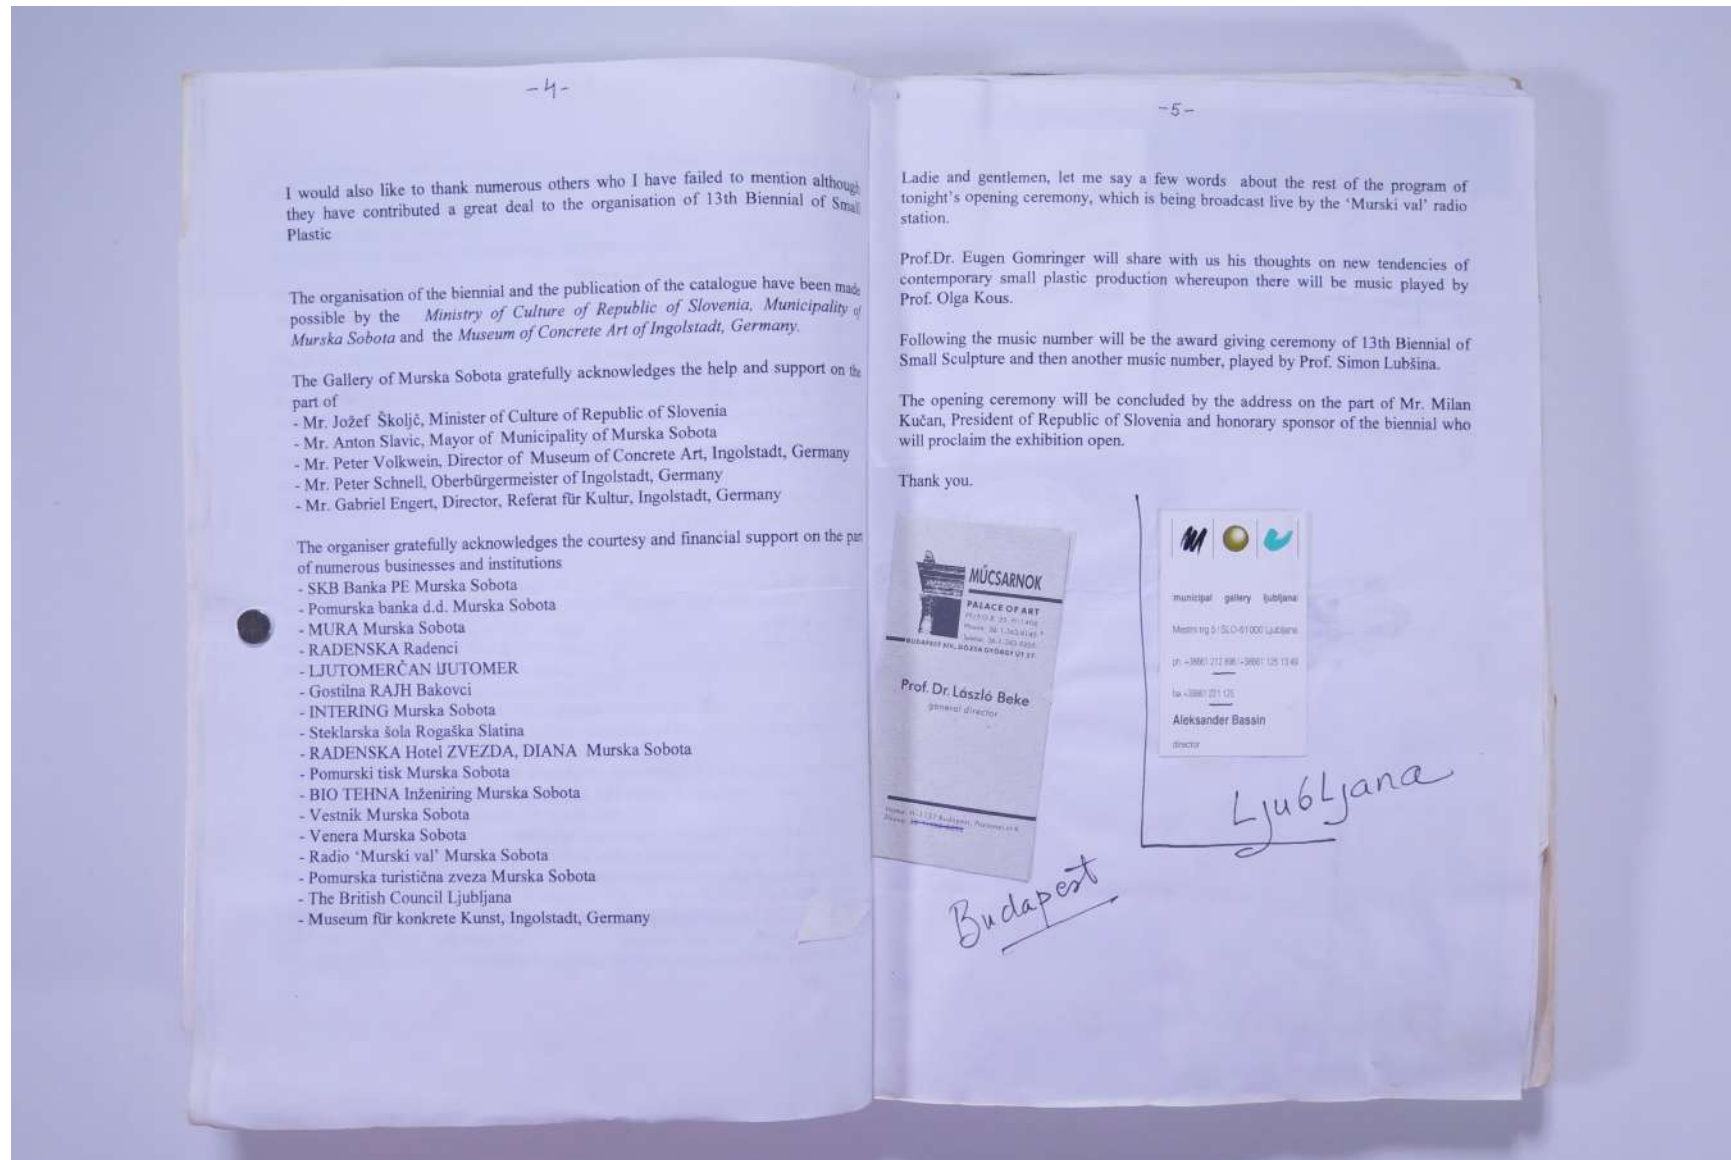 -4-
I would also like to thank numerous others who I have failed to mention although
they have contributed a great deal to the organisation of 13th Biennial of Small
Plastic
The organisation of the biennial and the publication of the catalogue have been made
possible by the Ministry of Culture of Republic of Slovenia, Municipality of
Murska Sobota and the Museum of Concrete Art of Ingolstadt, Germany.
The Gallery of Murska Sobota gratefully acknowledges the help and support on the
part of
- Mr. Jožef Školjč, Minister of Culture of Republic of Slovenia
- Mr. Anton Slavic, Mayor of Municipality of Murska Sobota
- Mr. Peter Volkwein, Director of Museum of Concrete Art, Ingolstadt, Germany
- Mr. Peter Schnell, Oberbürgermeister of Ingolstadt, Germany
- Mr. Gabriel Engert, Director, Referat für Kultur, Ingolstadt, Germany
The organiser gratefully acknowledges the courtesy and financial support on the part
of numerous businesses and institutions
- SKB Banka PE Murska Sobota
- Pomurska banka d.d. Murska Sobota
- MURA Murska Sobota
- RADENSKA Radenci
- LJUTOMERČAN IJUTOMER
- Gostilna RAJH Bakovci
- INTERING Murska Sobota
- Steklarska šola Rogaška Slatina
- RADENSKA Hotel ZVEZDA, DIANA Murska Sobota
- Pomurski tisk Murska Sobota
- BIO TEHNA Inženiring Murska Sobota
- Vestnik Murska Sobota
- Venera Murska Sobota
- Radio ‘Murski val’ Murska Sobota
- Pomurska turistična zveza Murska Sobota
- The British Council Ljubljana
- Museum für konkrete Kunst, Ingolstadt, Germany
-5-
Ladie and gentlemen, let me say a few words about the rest of the program of
tonight’s opening ceremony, which is being broadcast live by the ‘Murski val’ radio
station.
Prof.Dr. Eugen Gomringer will share with us his thoughts on new tendencies of
contemporary small plastic production whereupon there will be music played by
Prof. Olga Kous.
Following the music number will be the award giving ceremony of 13th Biennial of
Small Sculpture and then another music number, played by Prof. Simon Lubšina.
The opening ceremony will be concluded by the address on the part of Mr. Milan
Kučan, President of Republic of Slovenia and honorary sponsor of the biennial who
will proclaim the exhibition open.
Thank you.
MŰCSARNOK
PALACE OF ART
BUDAPEST XIV., DÓZSA GYÖRGY ÚT 37.
Prof. Dr. László Beke
general director
Home: H-1137 Budapest,
Phone:
Budapest
municipal gallery ljubljana
Mestni trg 5 / SLO-61000 Ljubljana
ph: +38661 212 896 / +38661 125 13 49
fax +38661 221 125
Aleksander Bassin
director
Ljubljana